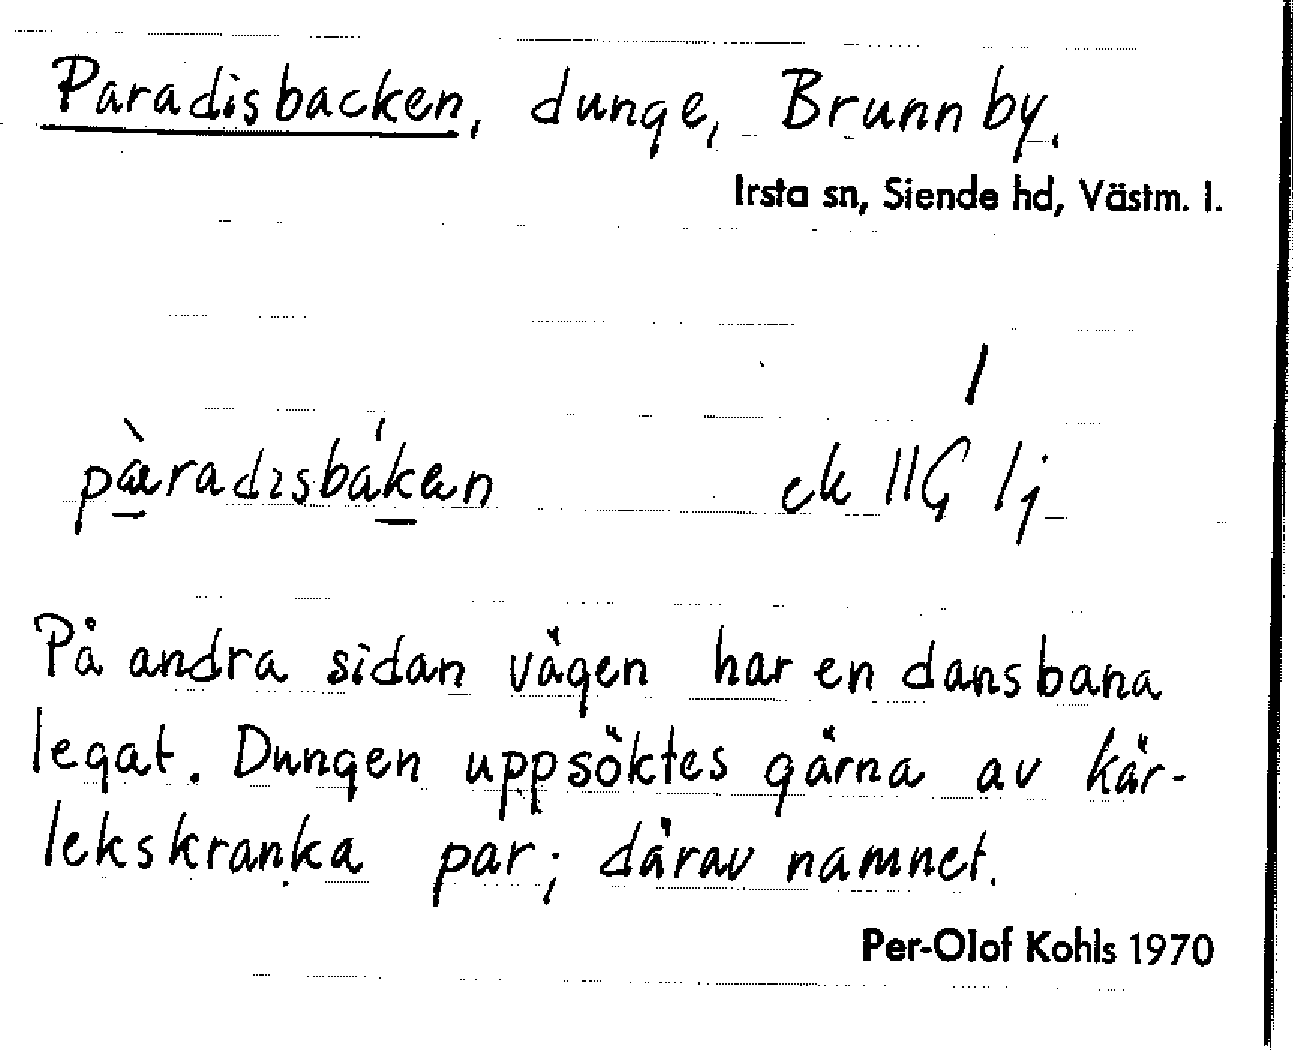 Paradisbacken, dunge, Brunnby.
Irsta sn, Siende hd, Västm. l.
pæ̀radɪsbákən
ek 11G 1j
På andra sidan vägen har en dansbana
legat. Dungen uppsöktes gärna av kär-
lekskranka par; därav namnet.
Per-Olof Kohls 1970